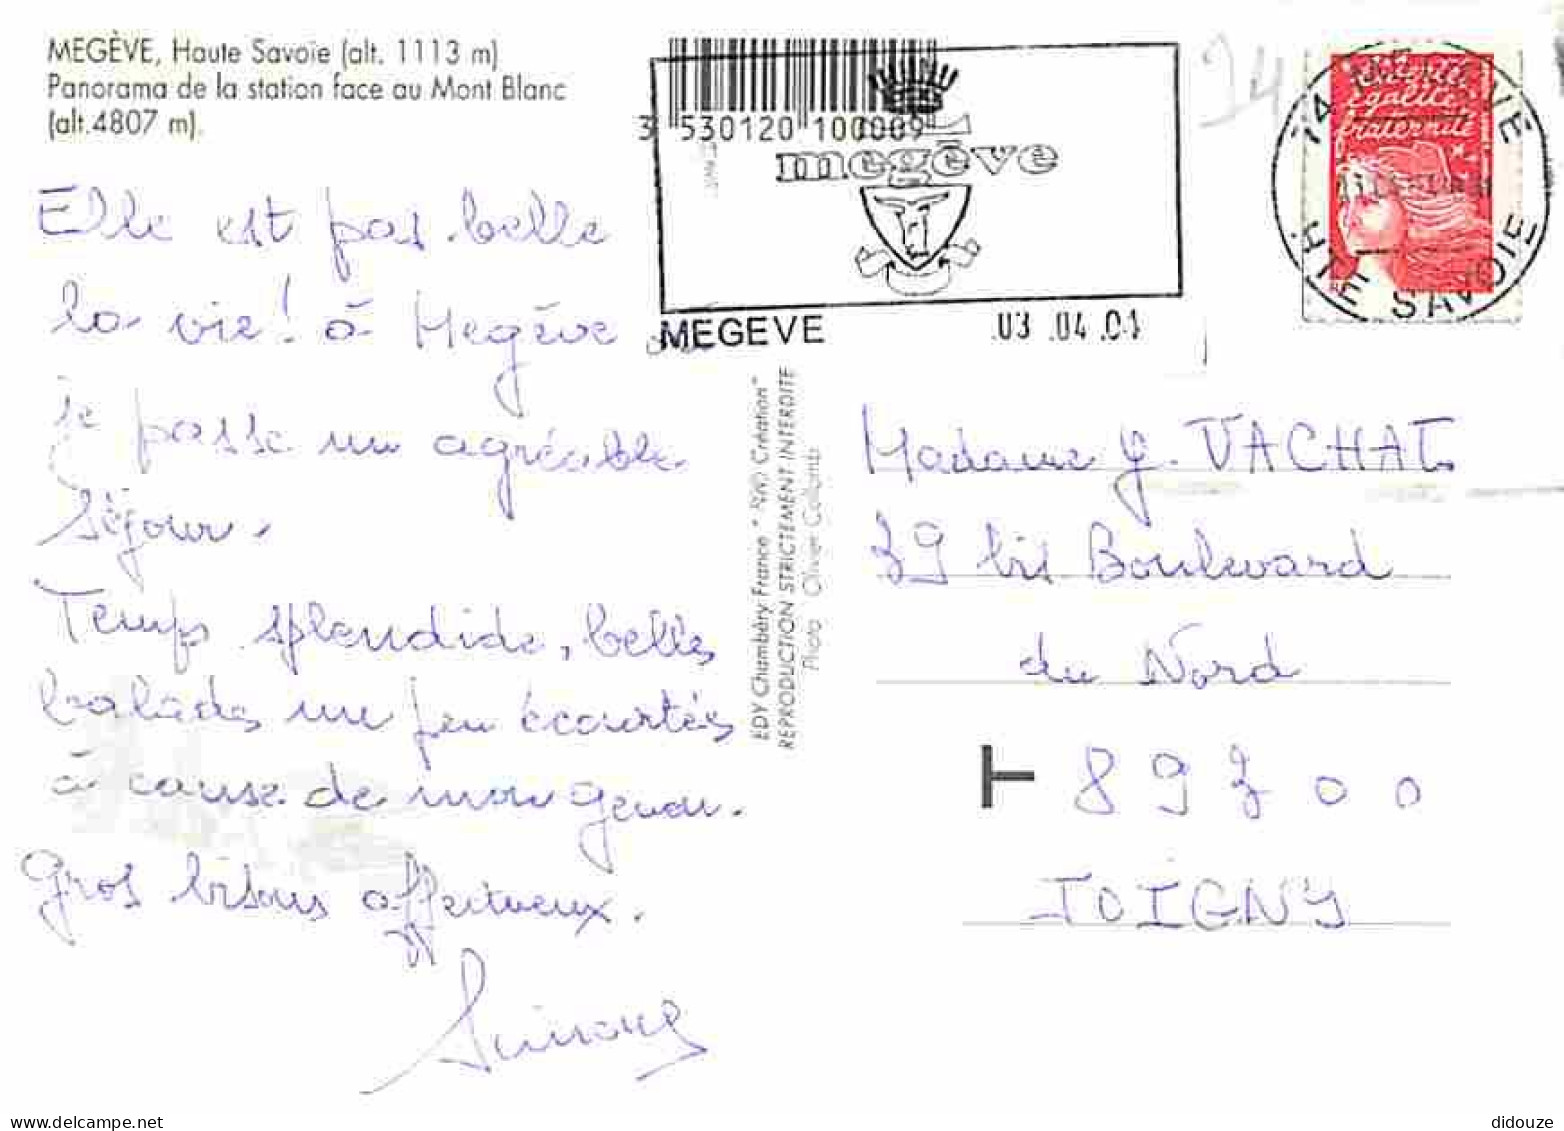 MEGÈVE, Haute Savoie (alt. 1113 m)
Panorama de la station face au Mont Blanc
(alt.4807 m).
3 530120 100009
megève
MEGEVE 03.04.01
74 MEGEVE
HTE SAVOIE
liberté
égalité
fraternité
Elle est pas belle
la vie! à Megève
je passe un agréable
séjour.
Temps splendide, belles
balades un peu écourtées
à cause de mon genou.
Gros bisous affectueux.
Simone
EDY Chambéry France "Création"
REPRODUCTION STRICTEMENT INTERDITE
Photo Olivier
Madame G. VACHAT
39 bis Boulevard
du Nord
T 89300
JOIGNY
didouze
delcampe.net